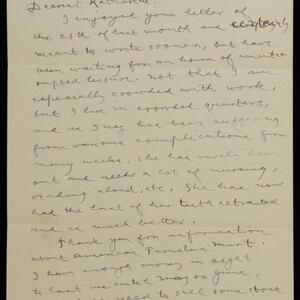 Dearest Katharine:
I enjoyed your letter of
the 25th of last month and certainly
meant to write sooner, but have
been waiting for an hour of uninter
rupted leisure. Not that I am
especially crowded with work,
but I live in crowded quarters,
and as May has been suffering
from various complications for
many weeks, she has rarely been
out and needs a lot of nursing,
reading aloud, etc. She has now
had the last of her teeth extracted
and is much better.
Thank you for information
about American Furniture Mart.
I have enough money in
to last me until May or June,
need to sell some stock